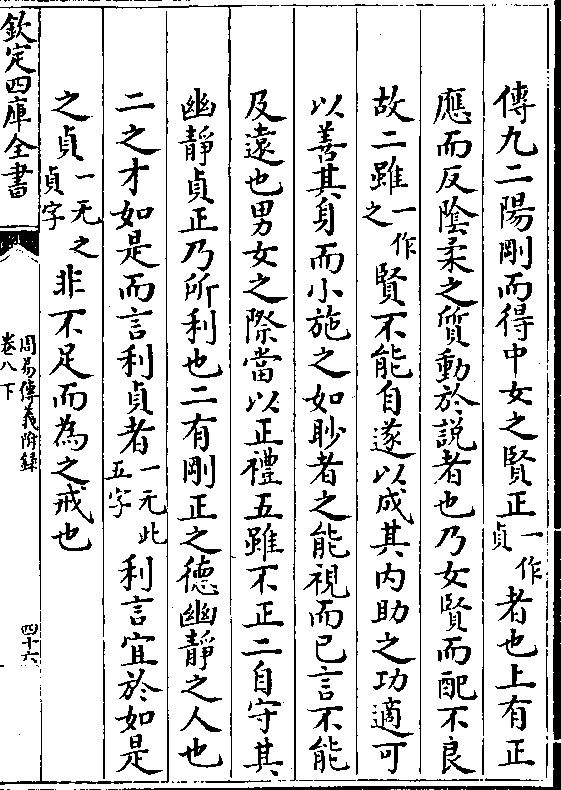 傳九二陽剛而得中女之賢正一作貞者也上有正
應而反陰柔之質動於說者也乃女賢而配不良
故二雖一作之賢不能自遂以成其內助之功適可
以善其身而小施之如眇者之能視而已言不能
及遠也男女之際當以正禮五雖不正二自守其
幽靜貞正乃所利也二有剛正之德幽靜之人也
二之才如是而言利貞者一无此五字利言宜於如是
之貞一无之貞字非不足而為之戒也
欽定四庫全書
周易傳義附録
卷八下
四十六